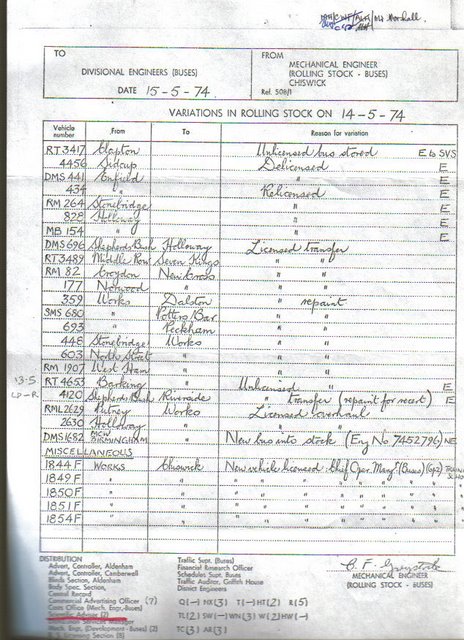 Mr Marshall
TO
DIVISIONAL ENGINEERS (BUSES)
DATE 15-5-74
FROM
MECHANICAL ENGINEER
(ROLLING STOCK - BUSES)
CHISWICK
Ref. 508/1
VARIATIONS IN ROLLING STOCK ON 14-5-74
Vehicle number From To Reason for variation
RT 3417 Clapton Unlicensed bus stored E to SVS
4456 Sidcup Delicensed E
DMS 441 Enfield " E
434 " Relicensed E
RM 264 Stonebridge " E
828 Holloway " E
MB 154 " " E
DMS 696 Shepherds Bush Holloway Licensed transfer
RT 3489 Middle Row Seven Kings " "
RM 82 Croydon New Cross " "
177 Norwood " " "
359 Works Dalston " repaint
SMS 680 " Potters Bar " "
693 " Peckham " "
448 Stonebridge Works " "
603 North Street " " "
RM 1907 West Ham " " "
13-5 RT 4653 Barking " Unlicensed " E
LD-R 4120 Shepherds Bush Riverside " transfer (repaint for recert) E
RML 2629 Putney Works Licensed overhaul
2630 Holloway " " "
DMS 1682 MCW BIRMINGHAM " New bus into stock (Eng No 7452796) NE
MISCELLANEOUS
1844 F WORKS Chiswick New vehicle licensed Chief Oper. Mangr. (Buses) (Gp2)
1849 F " " " " " " " " "
1850 F " " " " " " " " "
1851 F " " " " " " " " "
1854 F " " " " " " " " "
C. F. Greystock
MECHANICAL ENGINEER
(ROLLING STOCK - BUSES)
DISTRIBUTION
Advert, Controller, Aldenham
Advert, Controller, Camberwell
Blinds Section, Aldenham
Body Spec. Section,
Central Record
Commercial Advertising Officer (7)
Costs Office (Mech. Engr.-Buses)
Scientific Adviser (2)
Mech. Engr. (Development - Buses) (2)
Traffic Supt. (Buses)
Financial Research Officer
Schedules Supt. Buses
Traffic Auditor, Griffith House
District Engineers
Q(-) NX(3) T(-) HT(2) R(5)
TL(2) SW(-) WN(3) W(2) HW(-)
TC(3) AR(3)